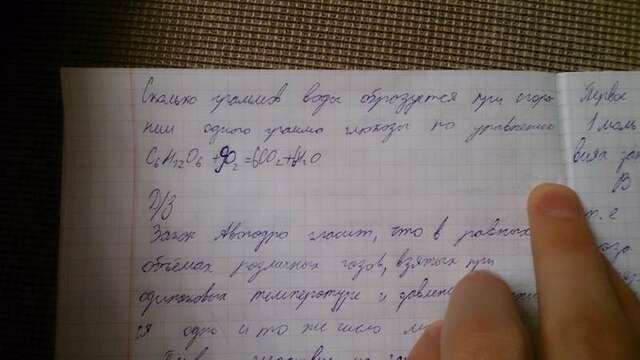 Сколько граммов воды образуется при сгора
нии одного грамма глюкозы по уравнению
C₆H₁₂O₆ + 9O₂ = 6CO₂ + 6H₂O
Д/З
Закон Авогадро гласит, что в равных
объёмах различных газов, взятых при
одинаковых температуре и давлении
ся одно и то же число
Первое
1 моль
В
т. е